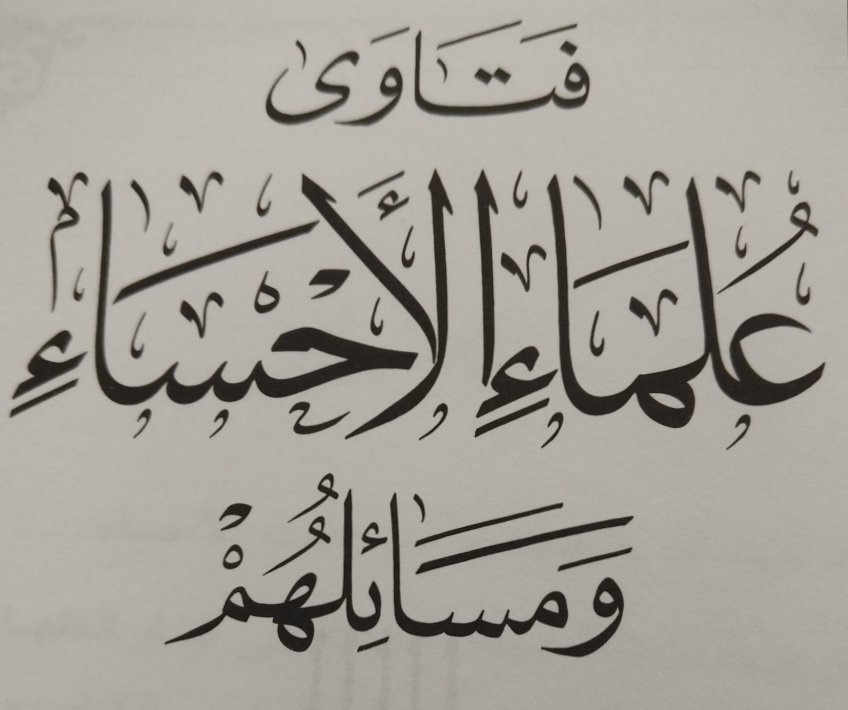 فَتَاوَى
عُلَمَاءِ الأَحْسَاءِ
وَمَسَائِلُهُمْ